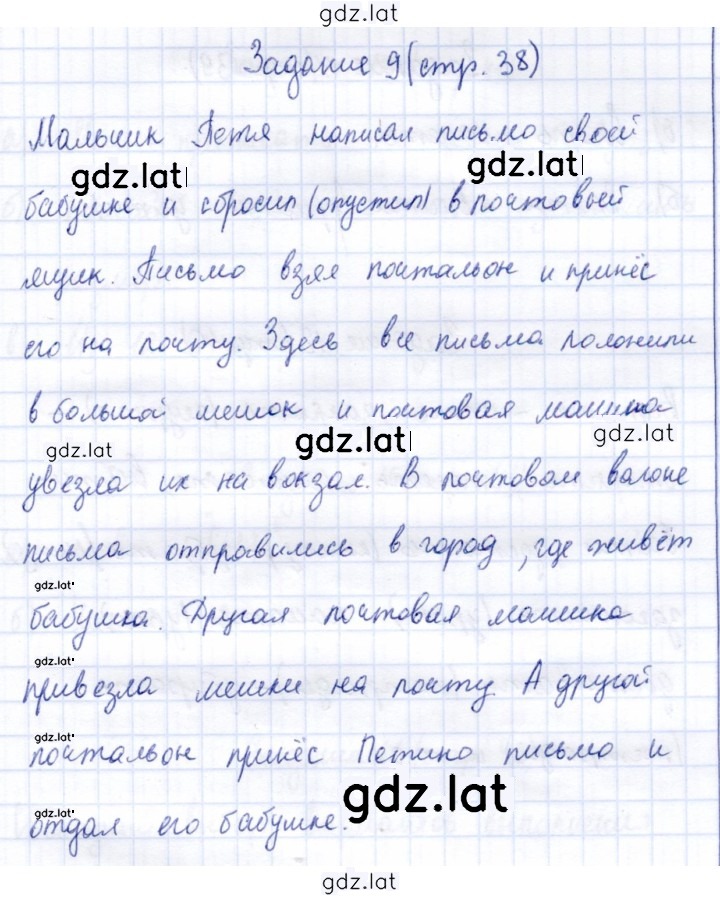 gdz.lat
Задание 9 (стр. 38)
Мальчик Петя написал письмо своей
gdz.lat gdz.lat
бабушке и сбросил (опустил) в почтовый
ящик. Письмо взял почтальон и принёс
его на почту. Здесь все письма положили
в большой мешок и почтовая машина
gdz.lat gdz.lat gdz.lat
увезла их на вокзал. В почтовом вагоне
письма отправились в город, где живёт
gdz.lat
бабушка. Другая почтовая машина
gdz.lat
привезла мешки на почту. А другой
gdz.lat
почтальон принёс Петино письмо и
gdz.lat gdz.lat
отдал его бабушке.
gdz.lat